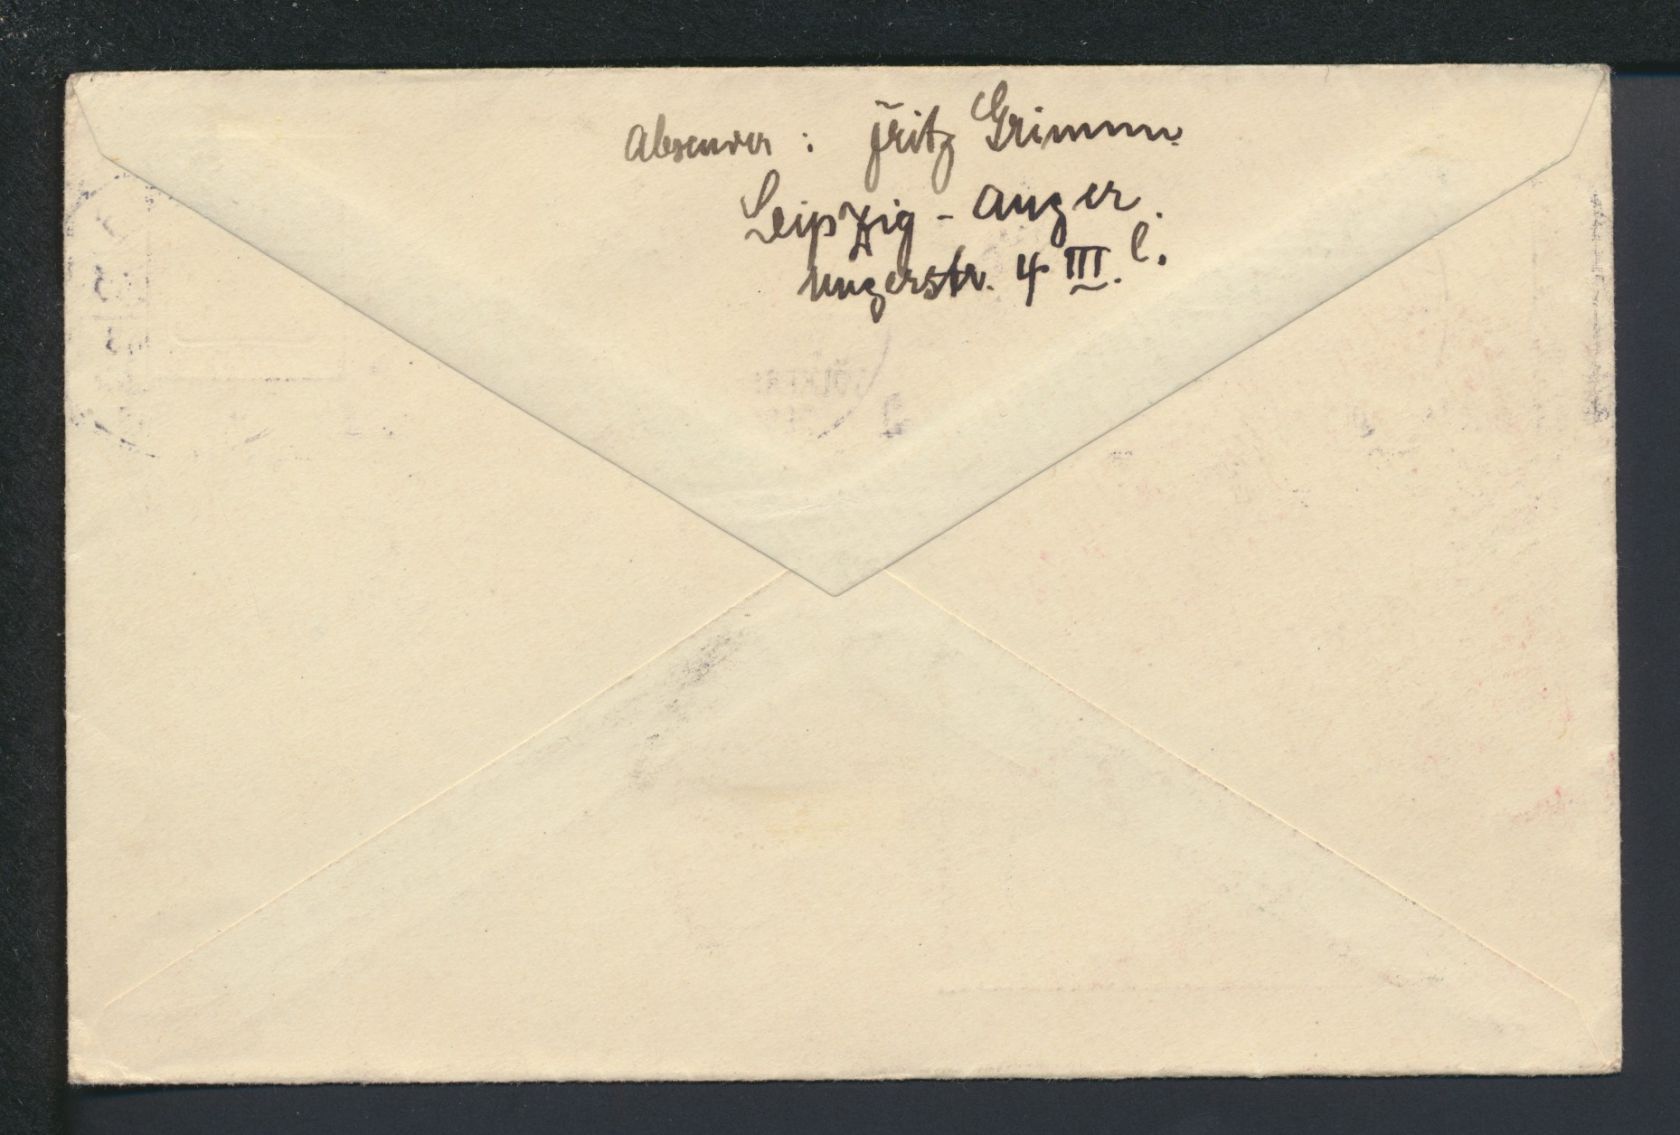 Absender : Fritz Grimm.
Leipzig - Anger.
Ungerstr. 4 III. l.